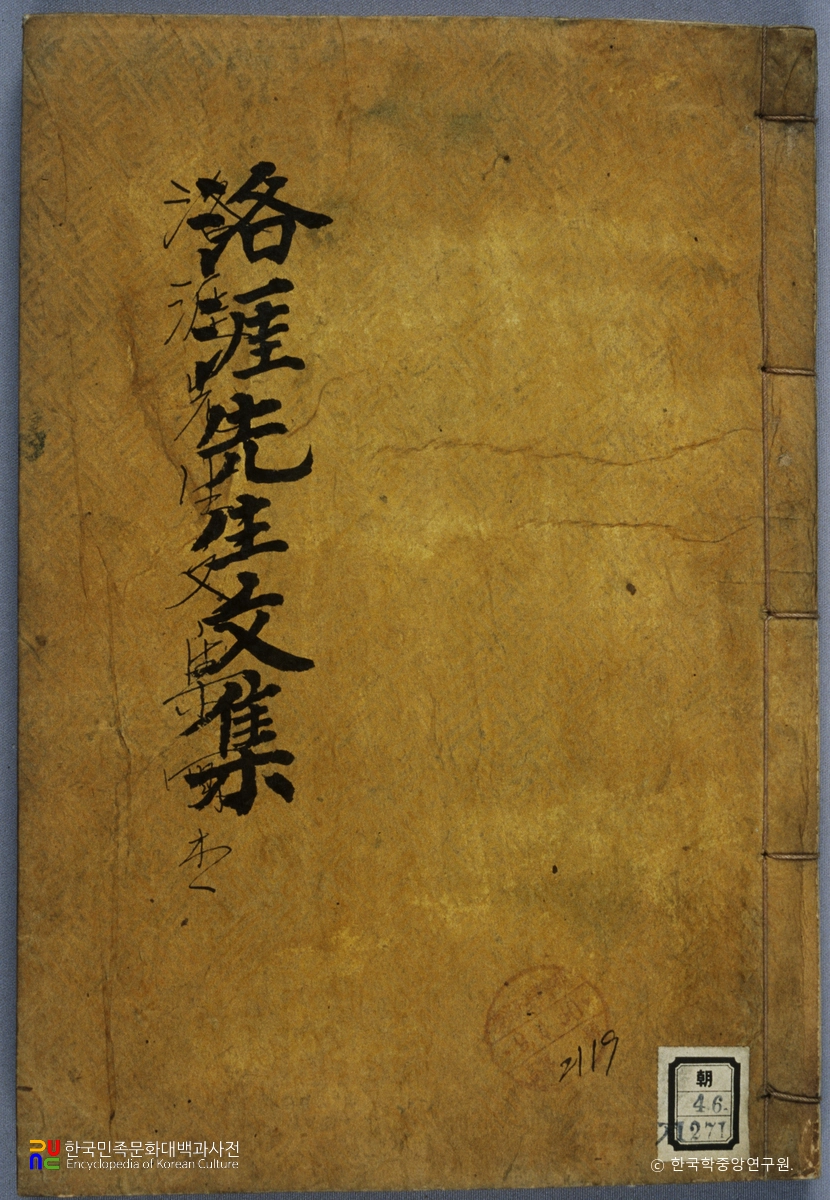 洛涯先生文集
洛涯先生文集
2119
朝
46.
1271
한국민족문화대백과사전
Encyclopedia of Korean Culture
© 한국학중앙연구원